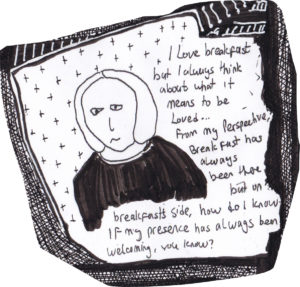 I Love breakfast
but I always think
about what it
means to be
Loved...
From my Perspective,
BreakFast has
always
been there,
but on
breakfasts side, how do I know
IF my presence has always been
welcoming, you know?